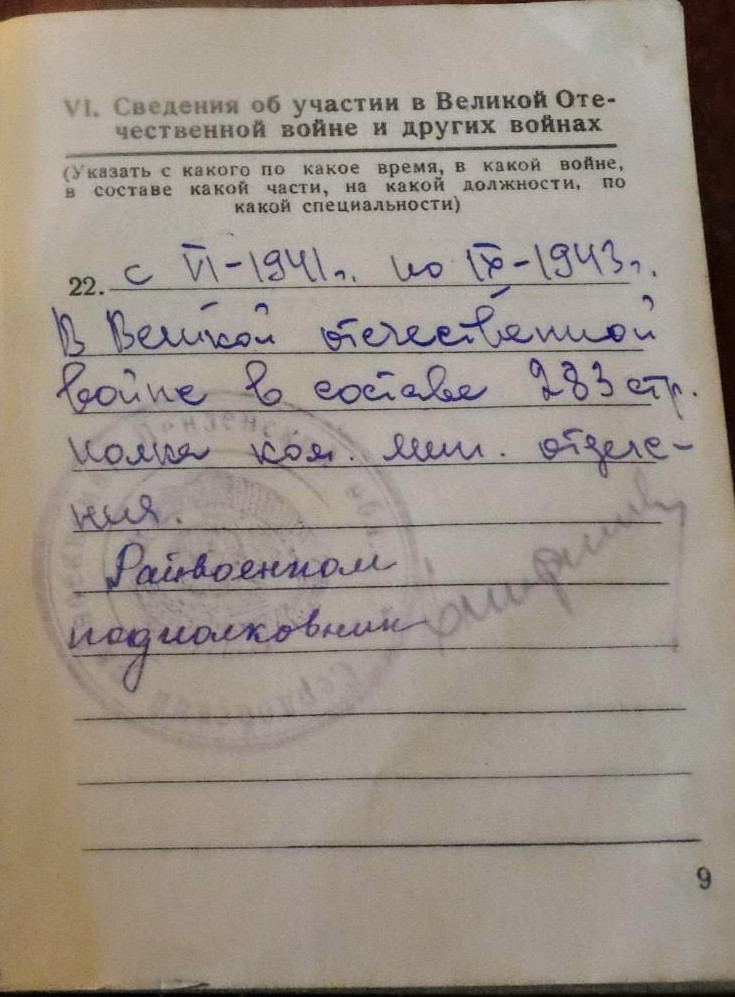 VI. Сведения об участии в Великой Оте-
чественной войне и других войнах
(Указать с какого по какое время, в какой войне,
в составе какой части, на какой должности, по
какой специальности)
22. с VI-1941г. по IX-1943г.
В Великой отечественной
войне в составе 283 стр.
полка ком. мин. отделе-
ния.
Райвоенком
подполковник
9